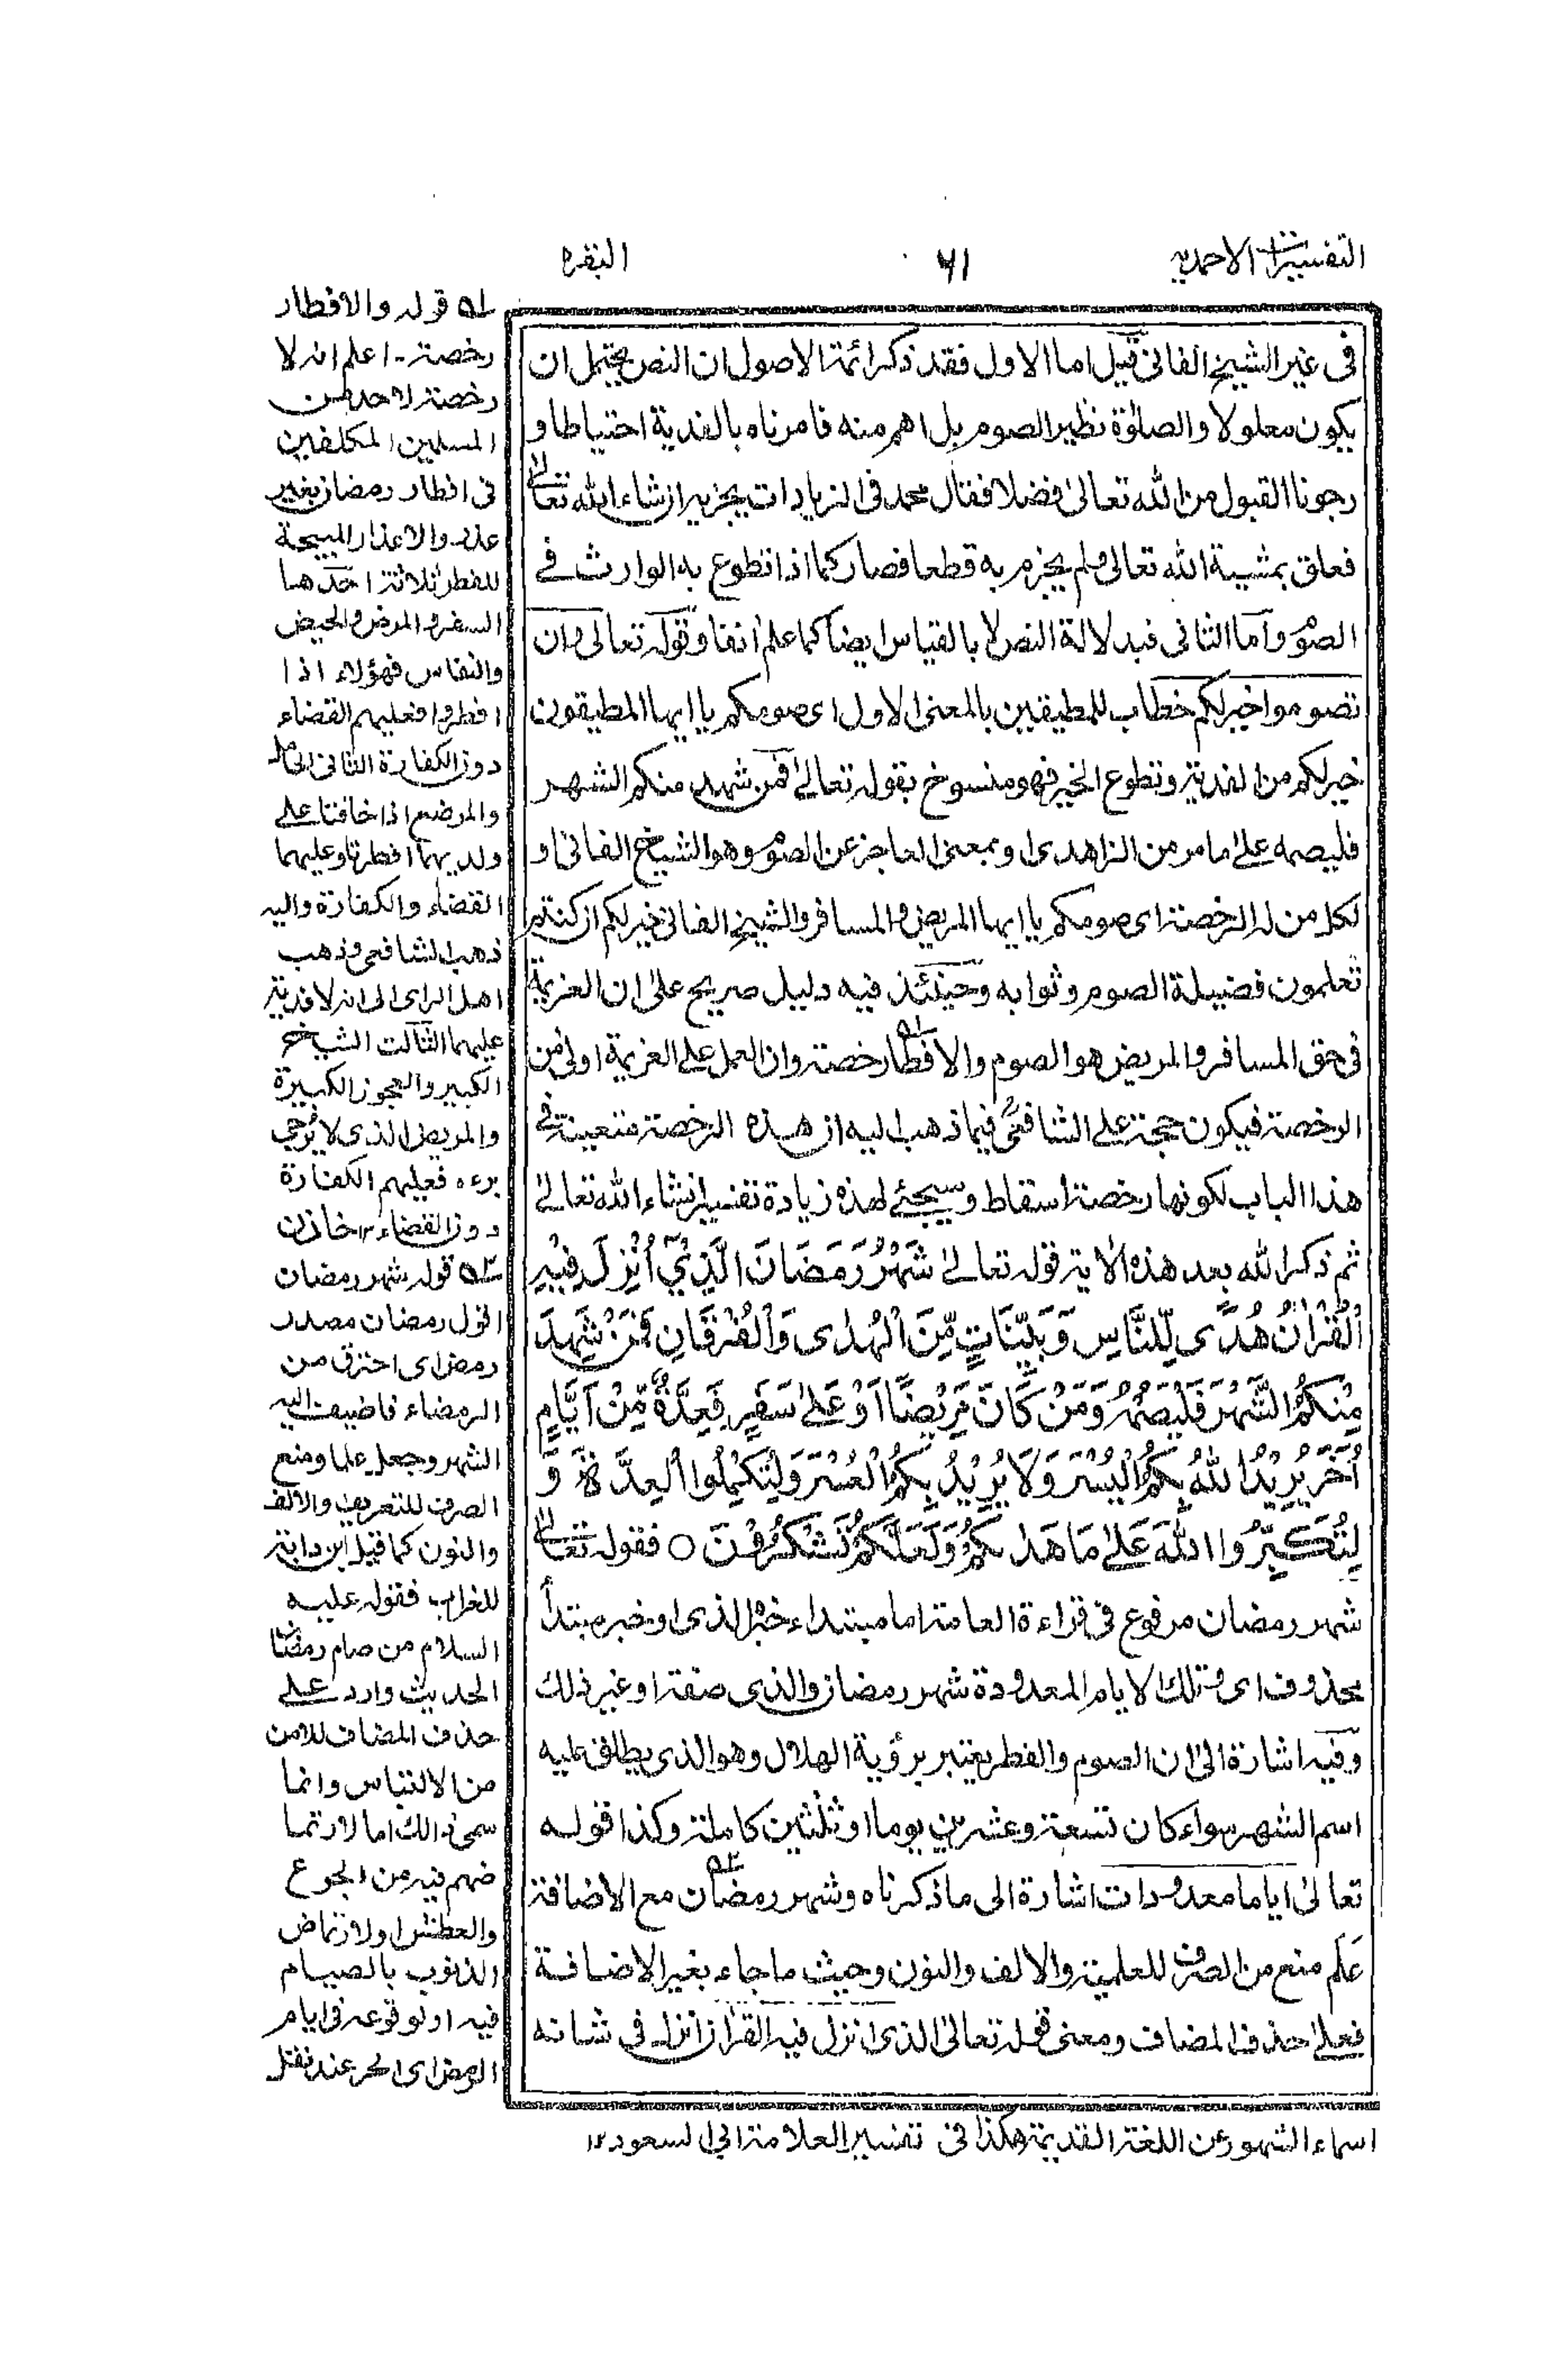 التفسيرات الاحمدية
٦١
البقرة
فى غير الشيخ الفانى قيل اما الاول فقد ذكر ائمة الاصول ان النص يحتمل ان
يكون معلولا والصلوٰة نظير الصوم بل اهم منه فامرناه بالفدية احتياطا و
رجونا القبول من الله تعالىٰ فضلا فقال محمد فى الزيادات يجزيه ان شاء الله تعالىٰ
فعلق بمشية الله تعالىٰ ولم يجزم به قطعا فصار كما اذا تطوع به الوارث فى
الصوم واما الثانى فبدلالة النص لا بالقياس ايضا كما علم اٰنفا وقوله تعالىٰ وان
تصوموا خير لكم خطاب للمطيقين بالمعنى الاول اى صومكم يا ايها المطيقون
خير لكم من الفدية وتطوع الخير فهو منسوخ بقوله تعالىٰ فمن شهد منكم الشهر
فليصمه علىٰ ما مر من الزاهدى او بمعنى العاجز عن الصوم وهو الشيخ الفانى او
لكل من له الرخصة اى صومكم يا ايها المريض والمسافر والشيخ الفانى خير لكم ان كنتم
تعلمون فضيلة الصوم وثوابه وحينئذ فيه دليل صريح علىٰ ان العزيمة
فى حق المسافر والمريض هو الصوم والافطار ؎۱ رخصة وان العمل على العزيمة اولىٰ من
الرخصة فيكون حجة على الشافعىؒ فيما ذهب اليه ان هذه الرخصة متعينة فى
هذا الباب لكونها رخصة اسقاط وسيجئ لهذه زيادة تفسير ان شاء الله تعالىٰ
ثم ذكر الله بعد هذه الاٰية قوله تعالىٰ شَهْرُ رَمَضَانَ الَّذِيْٓ اُنْزِلَ فِيْهِ
الْقُرْاٰنُ هُدًى لِّلنَّاسِ وَبَيِّنَاتٍ مِّنَ الْهُدٰى وَالْفُرْقَانِ فَمَنْ شَهِدَ
مِنْكُمُ الشَّهْرَ فَلْيَصُمْهُ وَمَنْ كَانَ مَرِيْضًا اَوْ عَلىٰ سَفَرٍ فَعِدَّةٌ مِّنْ اَيَّامٍ
اُخَرَ يُرِيْدُ اللّٰهُ بِكُمُ الْيُسْرَ وَلَا يُرِيْدُ بِكُمُ الْعُسْرَ وَلِتُكْمِلُوا الْعِدَّةَ وَ
لِتُكَبِّرُوا اللّٰهَ عَلىٰ مَا هَدٰىكُمْ وَلَعَلَّكُمْ تَشْكُرُوْنَ ○ فقوله تعالىٰ
شهر رمضان مرفوع فى قراءة العامة اما مبتداء خبره الذى او خبر مبتدأ
محذوف اى وتلك الايام المعدودة شهر رمضان والذى صفة او غير ذلك
وفيه اشارة الىٰ ان الصوم والفطر يعتبر برؤية الهلال وهو الذى يطلق عليه
اسم الشهر سواء كان تسعة وعشرين يوما او ثلٰثين كاملة وكذا قوله
تعالىٰ اياما معدودات اشارة الى ما ذكرناه وشهر رمضان ؎۲ مع الاضافة
عَلَم منع من الصرف للعلمية والالف والنون وحيث ما جاء بغير الاضافة
فعلىٰ حذف المضاف ومعنى قوله تعالىٰ الذى انزل فيه القراٰن انزل فى شانه
؎۱ قوله والافطار
رخصة ـ اعلم انه لا
رخصة لاحد من
المسلمين المكلفين
فى افطار رمضان بغير
عذر والاعذار المبيحة
للفطر ثلاثة احدها
السفر والمرض والحيض
والنفاس فهؤلاء اذا
افطروا فعليهم القضاء
دون الكفارة الثانى الحامل
والمرضع اذا خافتا على
ولديهما افطرتا وعليهما
القضاء والكفارة واليه
ذهب الشافعى وذهب
اهل الراى الى انه لا فدية
عليهما الثالث الشيخ
الكبير والعجوز الكبيرة
والمريض الذى لا يُرجى
برءه فعليهم الكفارة
دون القضاء ١٢ خازن
؎۲ قوله شهر رمضان
اقول رمضان مصدر
رمض اى احترق من
الرمضاء فاضيف اليه
الشهر وجعل علما ومنع
الصرف للتعريف والالف
والنون كما قيل ابن داية
للغراب فقوله عليه
السلام من صام رمضان
الحديث وارد على
حذف المضاف للامن
من الالتباس وانما
سمى ذالك اما لارتما
ضهم فيه من الجوع
والعطش او لارتماض
الذنوب بالصيام
فيه او لوقوعه فى ايام
الرمض اى الحر عند نقل
اسماء الشهور عن اللغة القديمة هكذا فى تفسير العلامة ابى السعود ١٢